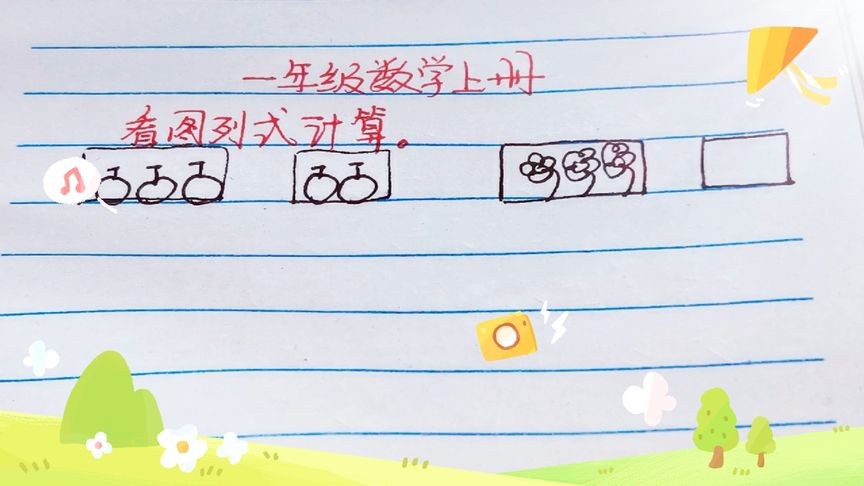 一年级数学上册
看图列式计算。